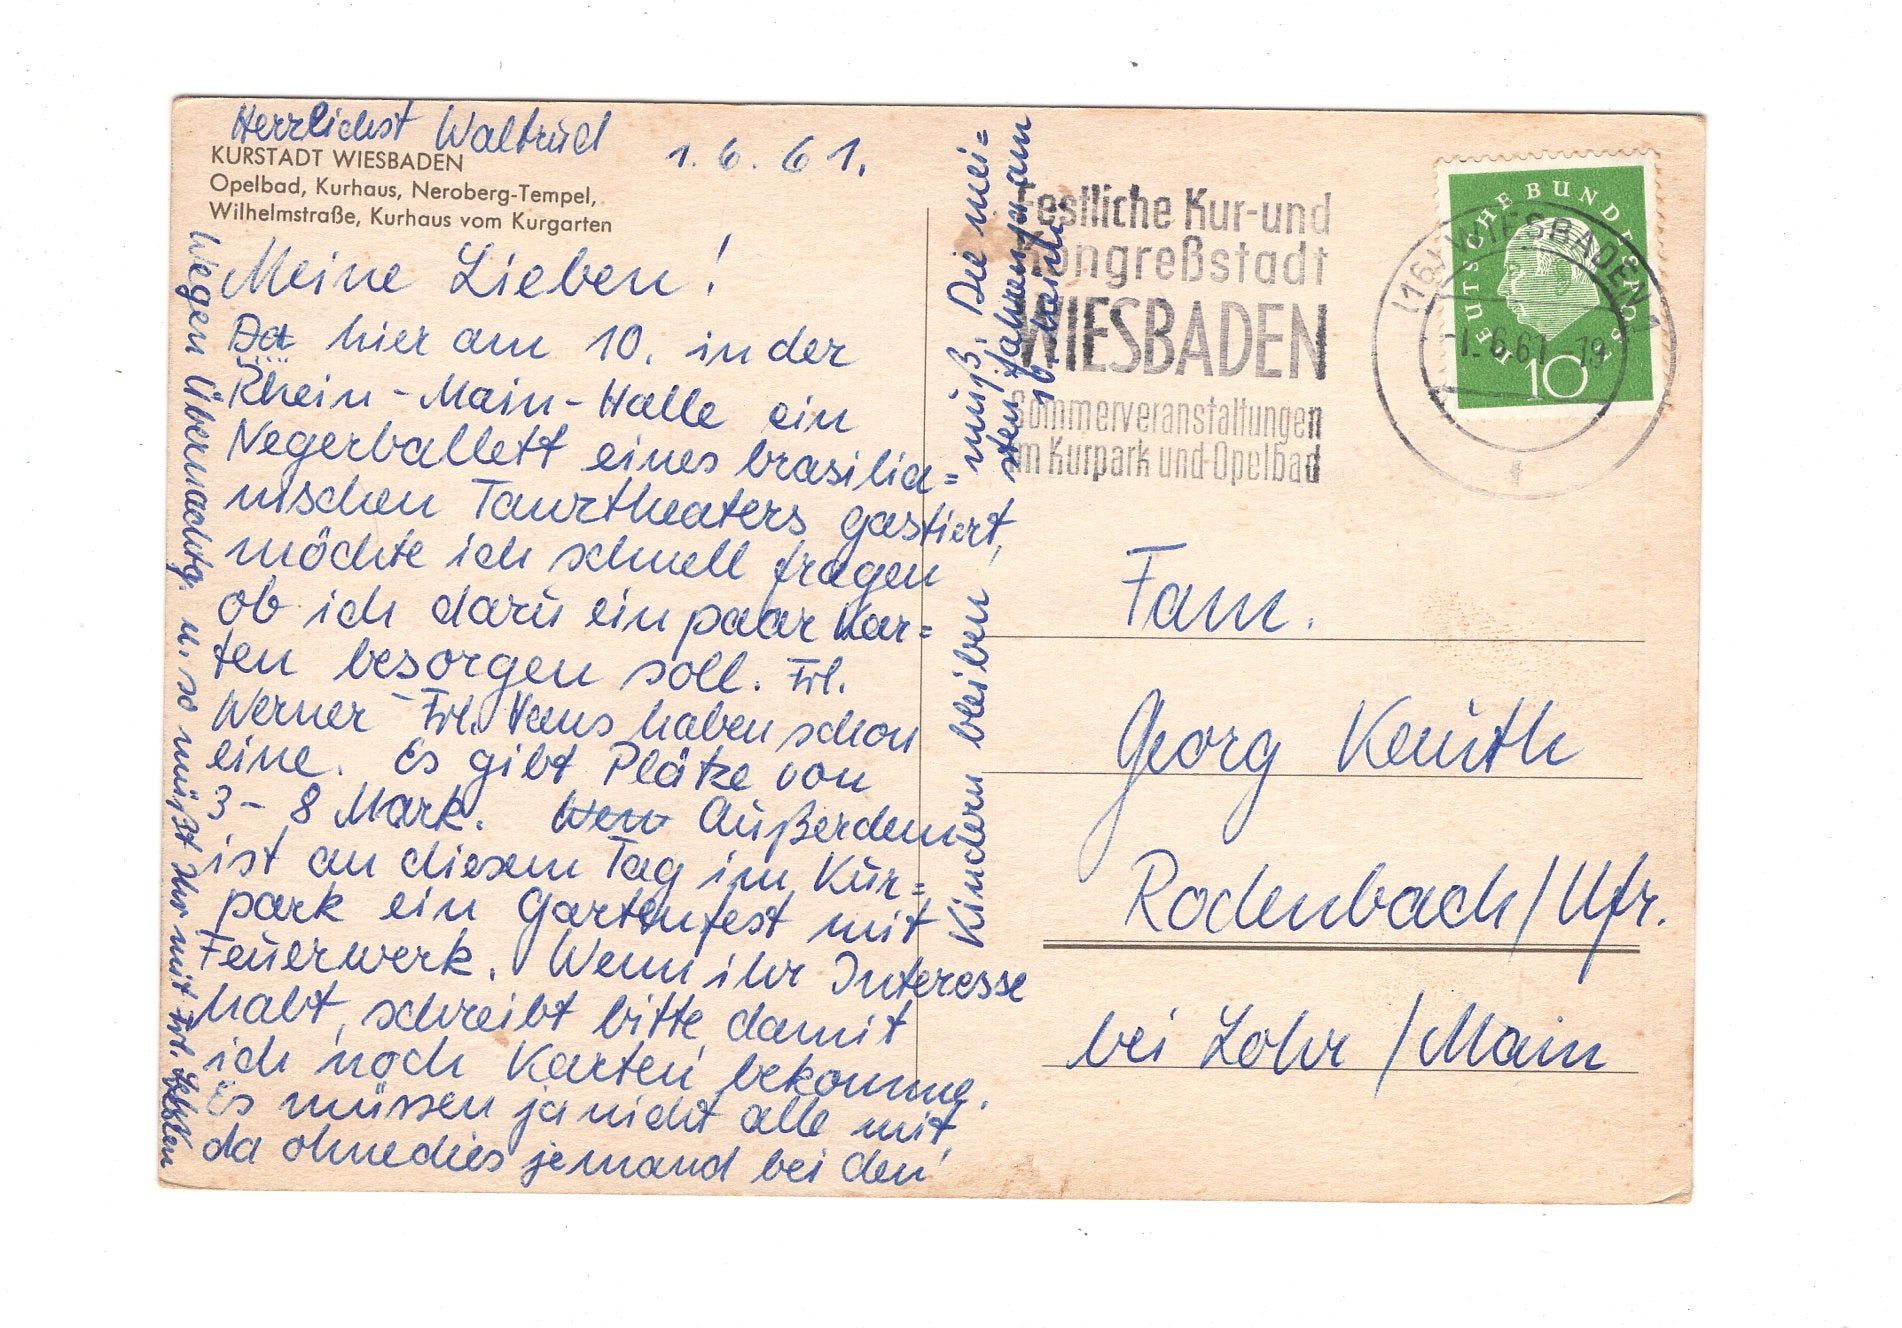 Herrlichst Waltrud
KURSTADT WIESBADEN
Opelbad, Kurhaus, Neroberg-Tempel,
Wilhelmstraße, Kurhaus vom Kurgarten
1.6.61.
Meine Lieben!
Da hier am 10. in der
Rhein-Main-Halle ein
Negerballett eines brasilia=
nischen Tanztheaters gastiert,
möchte ich schnell fragen
ob ich dazu ein paar Kar=
ten besorgen soll. Frl.
Werner - Frl. Haus haben schon
eine. Es gibt Plätze von
3 - 8 Mark. Außerdem
ist an diesem Tag im Kur=
park ein Gartenfest mit
Feuerwerk. Wenn ihr Interesse
habt, schreibt bitte, damit
ich noch Karten bekomme.
Es müssen ja nicht alle mit,
da ohnedies jemand bei den
Kindern bleiben muß. Die mei=
sten fahren ja am
Wegen Übernachtg. u. so müßt Ihr mit Frl.
Festliche Kur-und
Kongreßstadt
WIESBADEN
Sommerveranstaltungen
im Kurpark und Opelbad
(16) WIESBADEN 1
-1.6.61-19
DEUTSCHE BUNDESPOST
10
Fam.
Georg Keuth
Rodenbach/Ufr.
bei Lohr/Main